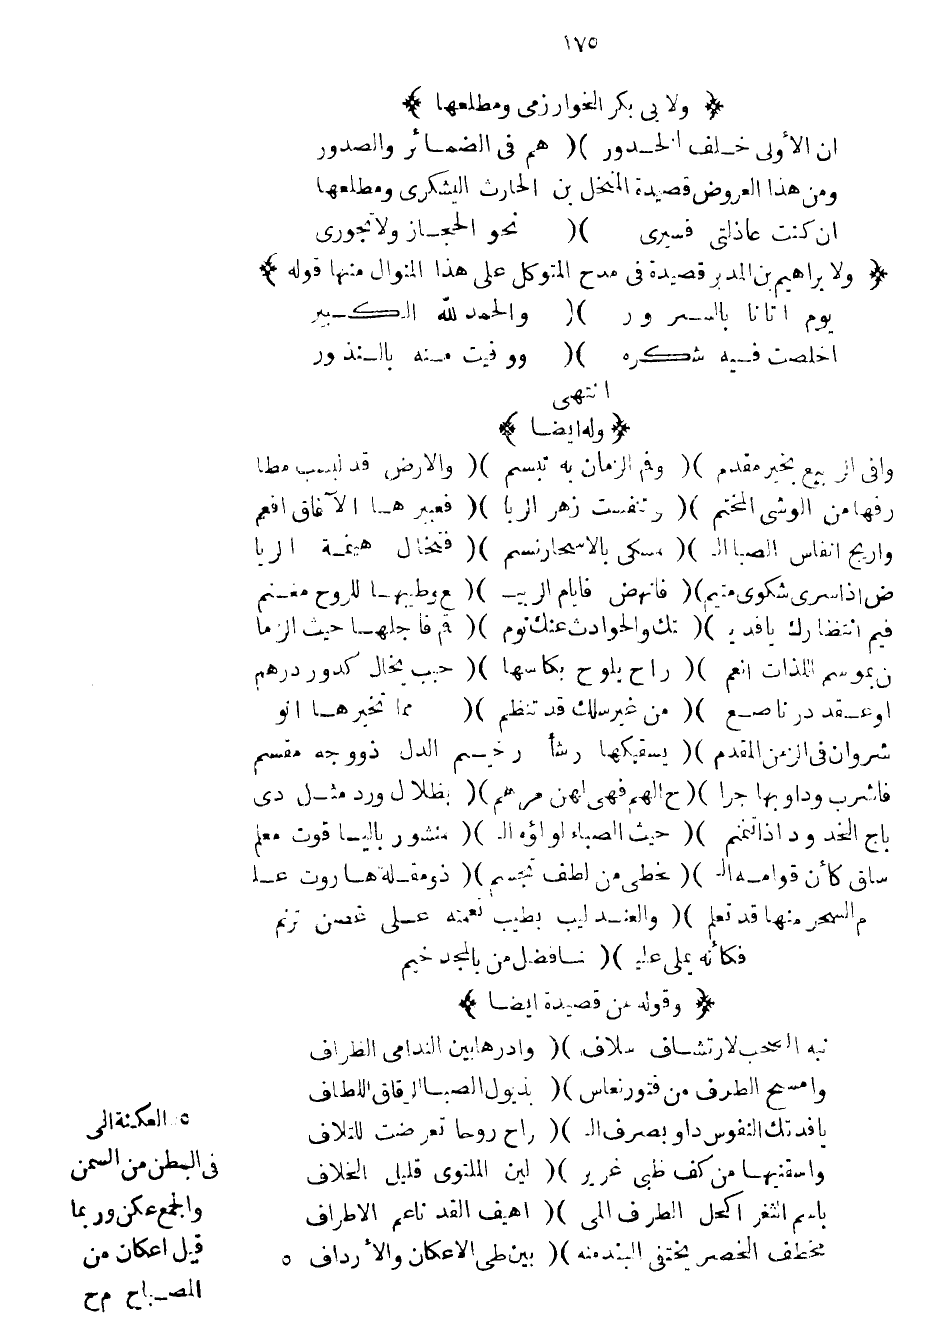 ١٧٥
﴿ ولابى بكر الخوارزمى ومطلعها ﴾
ان الأولى خلف الخدور )( هم فى الضمائر والصدور
ومن هذا العروض قصيدة المنخل بن الحارث اليشكرى ومطلعها
ان كنت عاذلتى فسيرى )( نحو الحجاز ولاتجورى
﴿ ولابراهيم بن المدبر قصيدة فى مدح المتوكل على هذا المنوال منها قوله ﴾
يوم اتانا بالسرور )( والحمد لله الكبير
اخلصت فيه شكره )( ووفيت منه بالنذور
انتهى
﴿ وله ايضا ﴾
وافى الربيع بخير مقدم )( وفم الزمان به تبسم )( والارض قد لبست مطا
رفها من الوشى المختم )( وتنفست زهر الربا )( فعبيرها الآفاق افعم
واريج انفاس الصبا ال )( مسكى بالاسحار نسم )( فتخال هينمة الريا
ض اذا سرى شكوى متيم )( فانهض فايام الربيـ )( ع وطيبها للروح مغنم
فيم انتظارك يافديـ )( تك والحوادث عنك نوم )( قم فاجلها حيث الزما
ن بموسم اللذات انعم )( راح يلوح بكاسها )( حبب يخال كدور درهم
اوعقد در ناصع )( من غير سلك قد تنظم )( مما تخبرها انو
شروان فى الزمن المقدم )( يسقيكها رشأ رخيم الدل ذووجه مقسم
فاشرب وداو بها جرا )( ح الهم فهى لهن مرهم )( بظلال ورد مثل دى
باج الخدود اذا تنمنم )( حيث الصباء لؤلؤه ال )( منثور بالياقوت معلم
ساق كأن قوامه ال )( خطى من لطف تجسم )( ذومقلة هاروت عل
م السحر منها قد تعلم )( والعندليب بطيب نغمته على غصن ترنم
فكأنه يملى عليـ )( نا فضل من بالمجد خيم
﴿ وقوله من قصيدة ايضا ﴾
نبه الصحب لارتشاف سلاف )( وادرها بين الندامى الظراف
وامسح الطرف من فتور نعاس )( بذيول الصبا الرقاق اللطاف
يافدتك النفوس داو بصرف ال )( راح روحا تعرضت للتلاف
واسقنيها من كف ظبى غرير )( لين الملتوى قليل الخلاف
باسم الثغر اكحل الطرف المى )( اهيف القد ناعم الاطراف
مخطف الخصر يختفى البند منه )( بين طى الاعكان والأرداف ٥
٥ العكنة الى
فى البطن من السمن
والجمع عكن وربما
قيل اعكان من
المصباح م ح